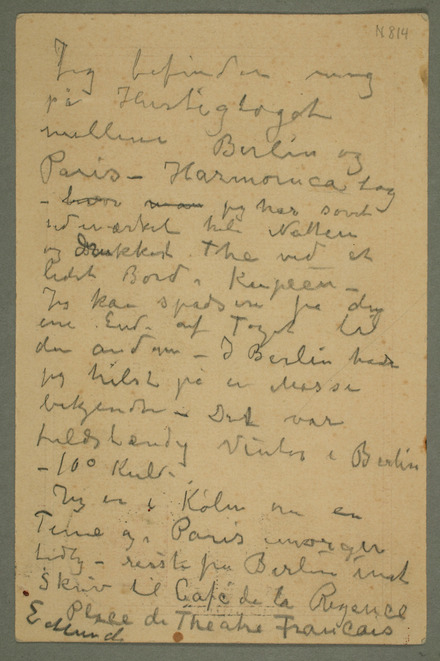 N 814
Jeg befinder mig
på Hurtigtoget
mellem Berlin og
Paris – Harmonica tog
– hvor man jeg har sovet
udmærket hele Natten
og drukket The ved et
lidet Bord i Kupeen –
Jeg kan spadsere fra den
ene End. af Toget til
den anden – I Berlin har
jeg hilst på en Masse
bekjendte – Det var
fuldstændig Vinter i Berlin
– 10° Kuld.
Jeg er i Köln om en
Time og i Paris imorgen
tidlig – reiste fra Berlin inat
Skriv til Café de la Regence
Place de Théatre Francais
E Munch